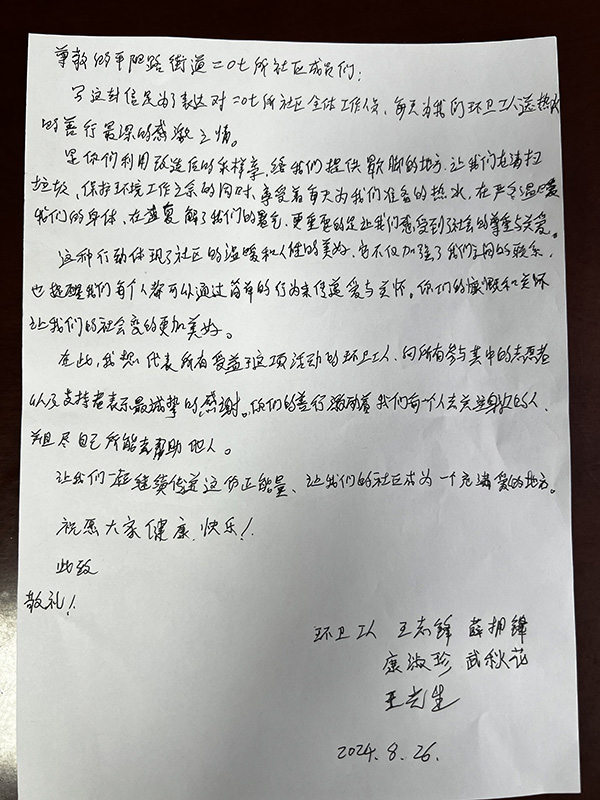 尊敬的平阳路街道二0七所社区成员们:
写这封信是为了表达对二0七所社区全体工作人员,每天为我们环卫工人送热水
的善行最深的感激之情。
是你们利用改造后的采样亭,给我们提供歇脚的地方,让我们在清扫
垃圾、保护环境工作之余的同时,享受着每天为我们准备的热水,在严冬温暖
我们的身体,在盛夏解了我们的暑气,更重要的是让我们感受到了社会的尊重与关爱。
这种行动体现了社区的温暖和人性的美好,它不仅加强了我们之间的联系,
也提醒我们每个人都可以通过简单的行为来传递爱与关怀。你们的慷慨和关怀
让我们的社会变的更加美好。
在此,我想代表所有受益于这项活动的环卫工人,向所有参与其中的志愿者
以及支持者表示最诚挚的感谢。你们的善行激励着我们每一个人去关注身边的人,
并且尽自己所能去帮助他人。
让我们一起继续传递这份正能量,让我们的社区成为一个充满爱的地方。
祝愿大家健康、快乐!
此致
敬礼!
环卫工人 王志锋 薛拥锋
康淑珍 武秋花
王先生
2024.8.26.